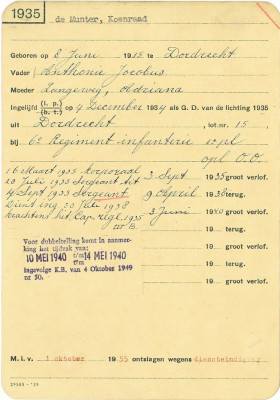 1935
de Munter, Koenraad
Geboren op 8 Juni 1915 te Dordrecht
Vader Anthonie Jacobus
Moeder Langerweg, Adriana
Ingelijfd (i. p.) (b. t.) op 4 December 1934 als G. D. van de lichting 1935
uit Dordrecht , lot nr. 15 ,
bij 6e Regiment infanterie
opl. O.O.
16 Maart 1935 Korporaal 3 Sept 1935 groot verlof.
13 Juli 1935 Sergeant tit
4 Sept 1935 Sergeant 9 April 1936 terug.
Dienstring 30 Juli 1938
krachtens het Cap. regl. 1935 3 Juni 1940 groot verlof.
19 terug.
Voor dubbeltelling komt in aanmer-
king het tijdvak van:
10 MEI 1940 t/m 14 MEI 1940
ingevolge K.B. van 4 Oktober 1949
nr 50.
19 groot verlof.
19 terug.
19 groot verlof.
19 terug.
19 groot verlof.
M. i. v. 1 oktober 1955 ontslagen wegens diensteindiging
29503 - '39